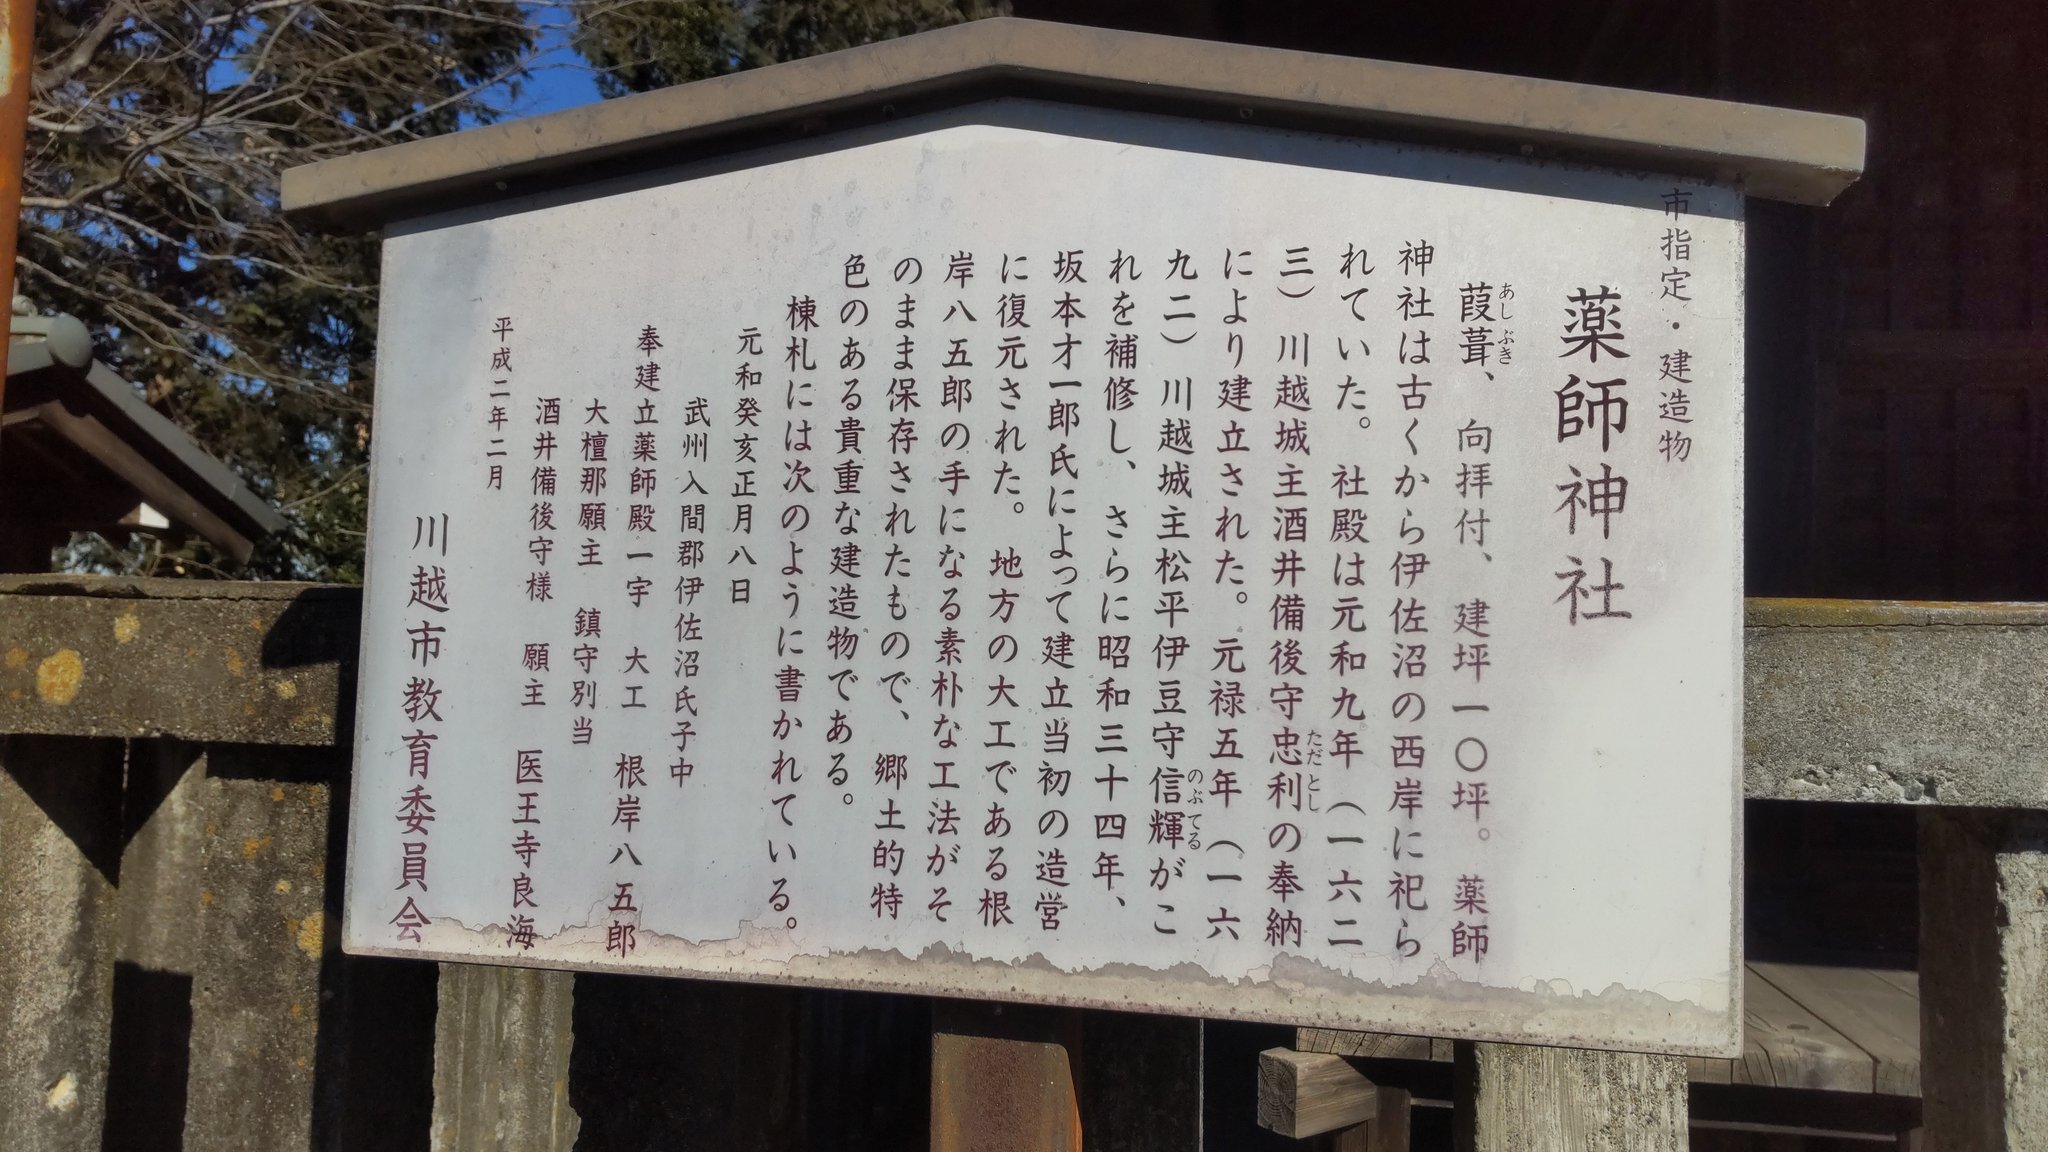 市指定・建造物
薬師神社
葭葺、向拝付、建坪一〇坪。薬師
あしぶき
神社は古くから伊佐沼の西岸に祀ら
れていた。社殿は元和九年（一六二
三）川越城主酒井備後守忠利の奉納
ただとし
により建立された。元禄五年（一六
九二）川越城主松平伊豆守信輝がこ
のぶてる
れを補修し、さらに昭和三十四年、
坂本才一郎氏によって建立当初の造営
に復元された。地方の大工である根
岸八五郎の手になる素朴な工法がそ
のまま保存されたもので、郷土的特
色のある貴重な建造物である。
棟札には次のように書かれている。
元和癸亥正月八日
武州入間郡伊佐沼氏子中
奉建立薬師殿一宇 大工 根岸八五郎
大檀那願主 鎮守別当
酒井備後守様 願主 医王寺良海
平成二年二月
川越市教育委員会